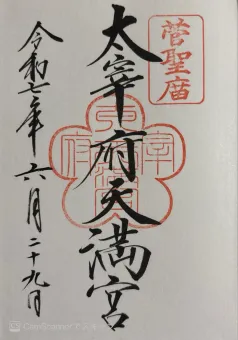 菅聖庿
太宰府天満宮
令和七年六月二十九日